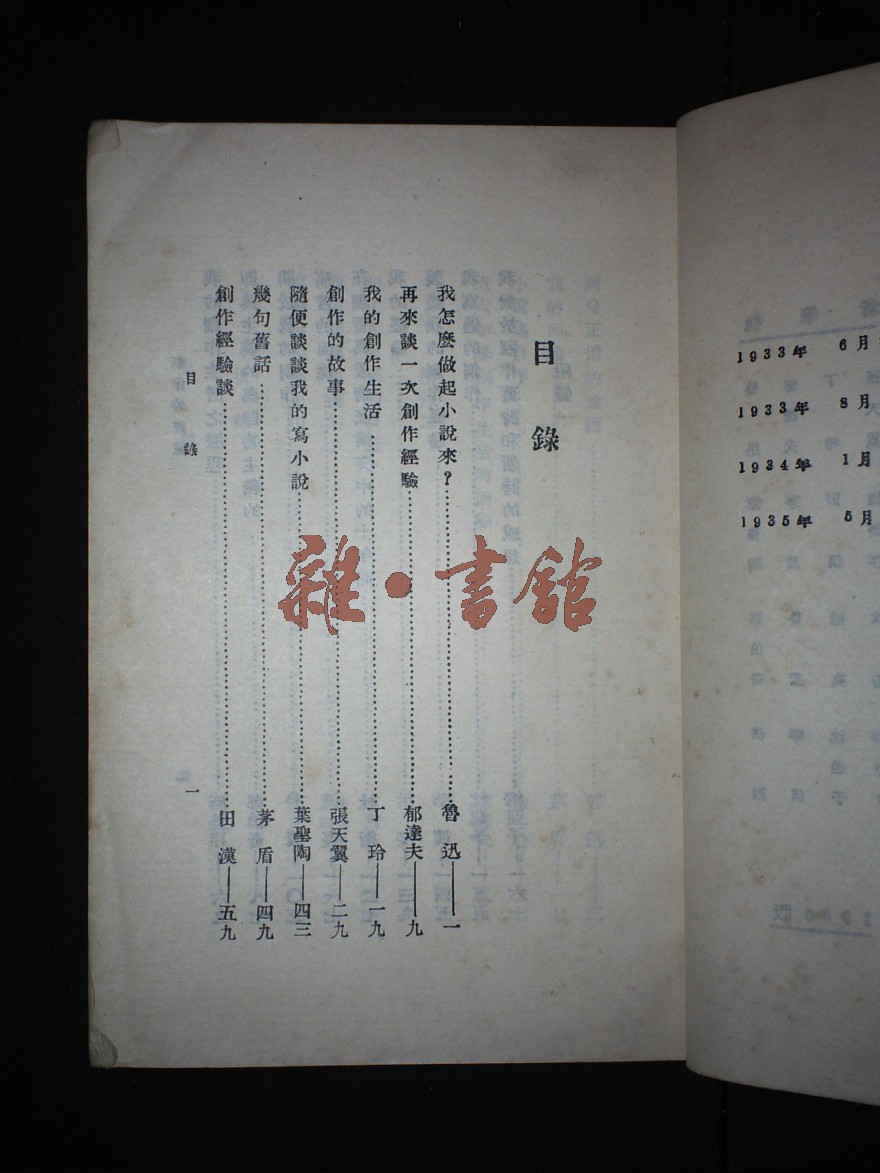 目錄
我怎麽做起小說來？……魯迅——一
再來談一次創作經驗……郁達夫——九
我的創作生活……丁玲——一九
創作的故事……張天翼——二九
隨便談談我的寫小說……葉聖陶——四三
幾句舊話……茅盾——四九
創作經驗談……田漢——五九
目錄
一
1933年 6月
1933年 8月
1934年 1月
1935年 5月
雜·書館